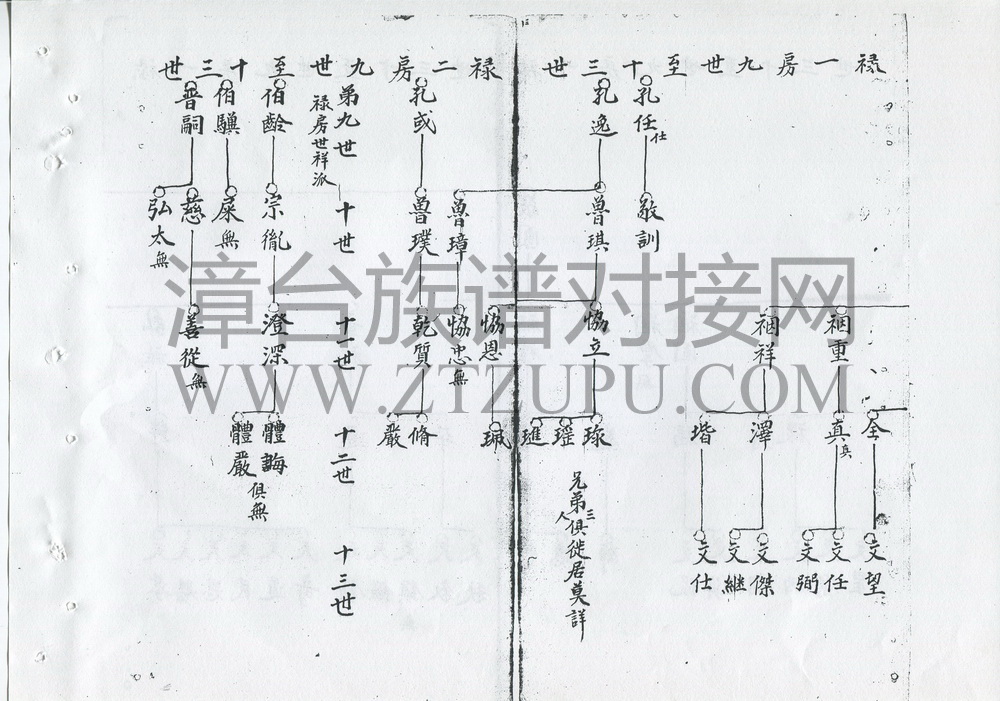 祿一房九世至十三世
孔任
仕
敬訓
孔逸
魯琪
魯璋
祵重
祵祥
協立
協恩
協忠
無
仝
真
真
澤
堦
琭
瑶
琟
珮
文望
文任
文弼
文傑
文継
文仕
兄弟三人俱徙居莫詳
祿二房九世至十三世
第九世
祿房世祥派
十世
十一世
十二世
十三世
孔或
魯璞
乾質
脩
嚴
伯齡
宗胤
澄深
體誨
體嚴
俱無
伯驥
屎
無
晋嗣
慈
弘太
無
善從
無
漳台族谱对接网
WWW.ZTZUPU.COM